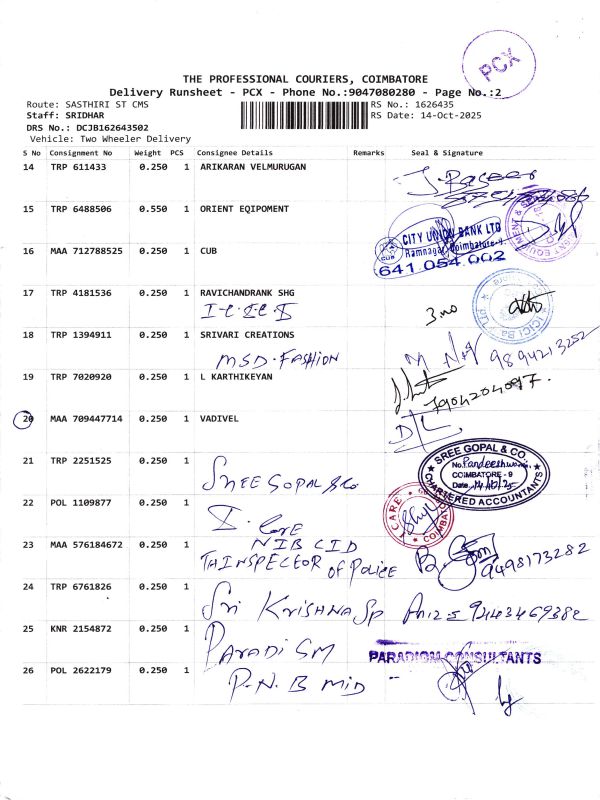 PCX
THE PROFESSIONAL COURIERS, COIMBATORE
Delivery Runsheet - PCX - Phone No.:9047080280 - Page No.:2
Route: SASTHIRI ST CMS RS No.: 1626435
Staff: SRIDHAR RS Date: 14-Oct-2025
DRS No.: DCJB162643502
Vehicle: Two Wheeler Delivery
S No Consignment No Weight PCS Consignee Details Remarks Seal & Signature
14 TRP 611433 0.250 1 ARIKARAN VELMURUGAN
15 TRP 6488506 0.550 1 ORIENT EQIPOMENT
CITY UNION BANK LTD
Ramnagar, Coimbatore-9.
CUB
641 054 002
16 MAA 712788525 0.250 1 CUB
17 TRP 4181536 0.250 1 RAVICHANDRANK SHG
3 no
ICICI Ba
18 TRP 1394911 0.250 1 SRIVARI CREATIONS
MSD-FASHION 9894213252
19 TRP 7020920 0.250 1 L KARTHIKEYAN
20 MAA 709447714 0.250 1 VADIVEL
21 TRP 2251525 0.250 1 SREE GOPAL & Co
SREE GOPAL & CO.,
COIMBATORE - 9
CHARTERED ACCOUNTANTS
22 POL 1109877 0.250 1 I. Care
I CARE
COIMBAT
23 MAA 576184672 0.250 1 NIB CID
THINSPECTOR OF POLICE 9498173282
24 TRP 6761826 0.250 1 Sri KRISHNA SP 9443469382
25 KNR 2154872 0.250 1 PARADISM
PARADIGM CONSULTANTS
26 POL 2622179 0.250 1 P.N.B MID